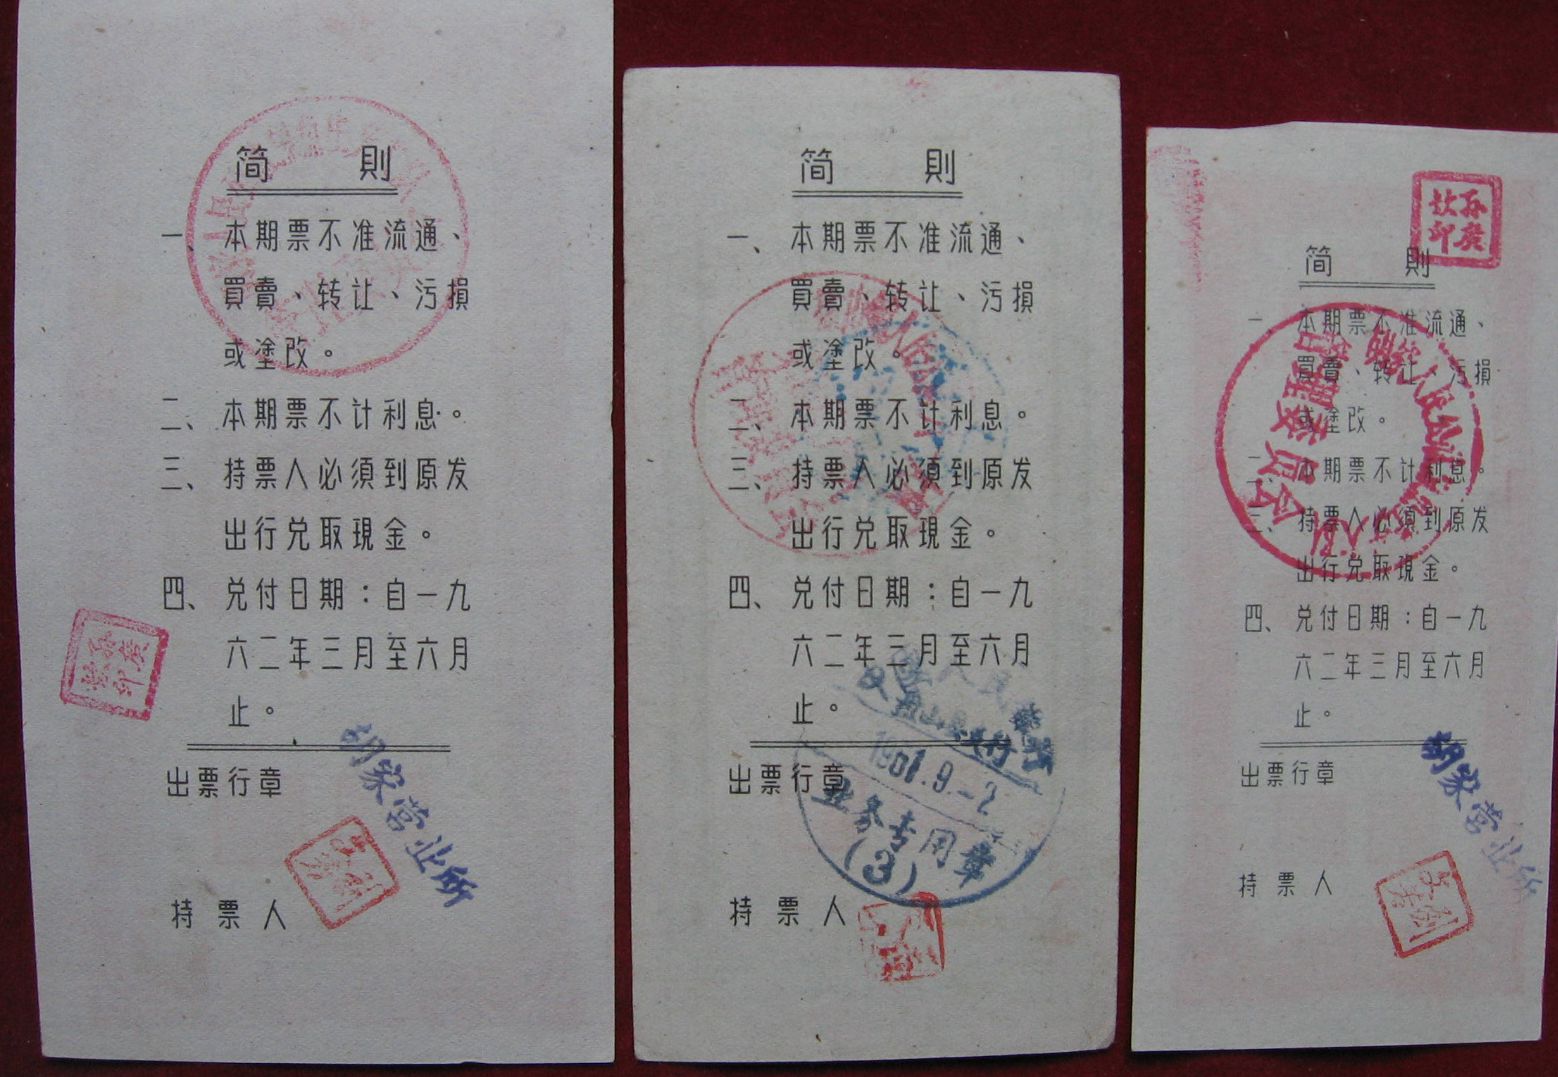 简 則
一、本期票不准流通、
買賣、转让、污損
或塗改。
二、本期票不计利息。
三、持票人必須到原发
出行兑取現金。
四、兑付日期：自一九
六二年三月至六月
止。
出票行章
胡家营业所
持票人
简 則
一、本期票不准流通、
買賣、转让、污損
或塗改。
二、本期票不计利息。
三、持票人必須到原发
出行兑取現金。
四、兑付日期：自一九
六二年三月至六月
止。
人民
盘山县支行
1961.9.-2
出票行章
业务专用章
(3)
持票人
孙广
印
简 則
一、本期票不准流通、
買賣、转让、污損
或塗改。
二、本期票不计利息。
三、持票人必須到原发
出行兑取現金。
管理委員会
人民公社
四、兑付日期：自一九
六二年三月至六月
止。
出票行章
胡家营业所
持票人